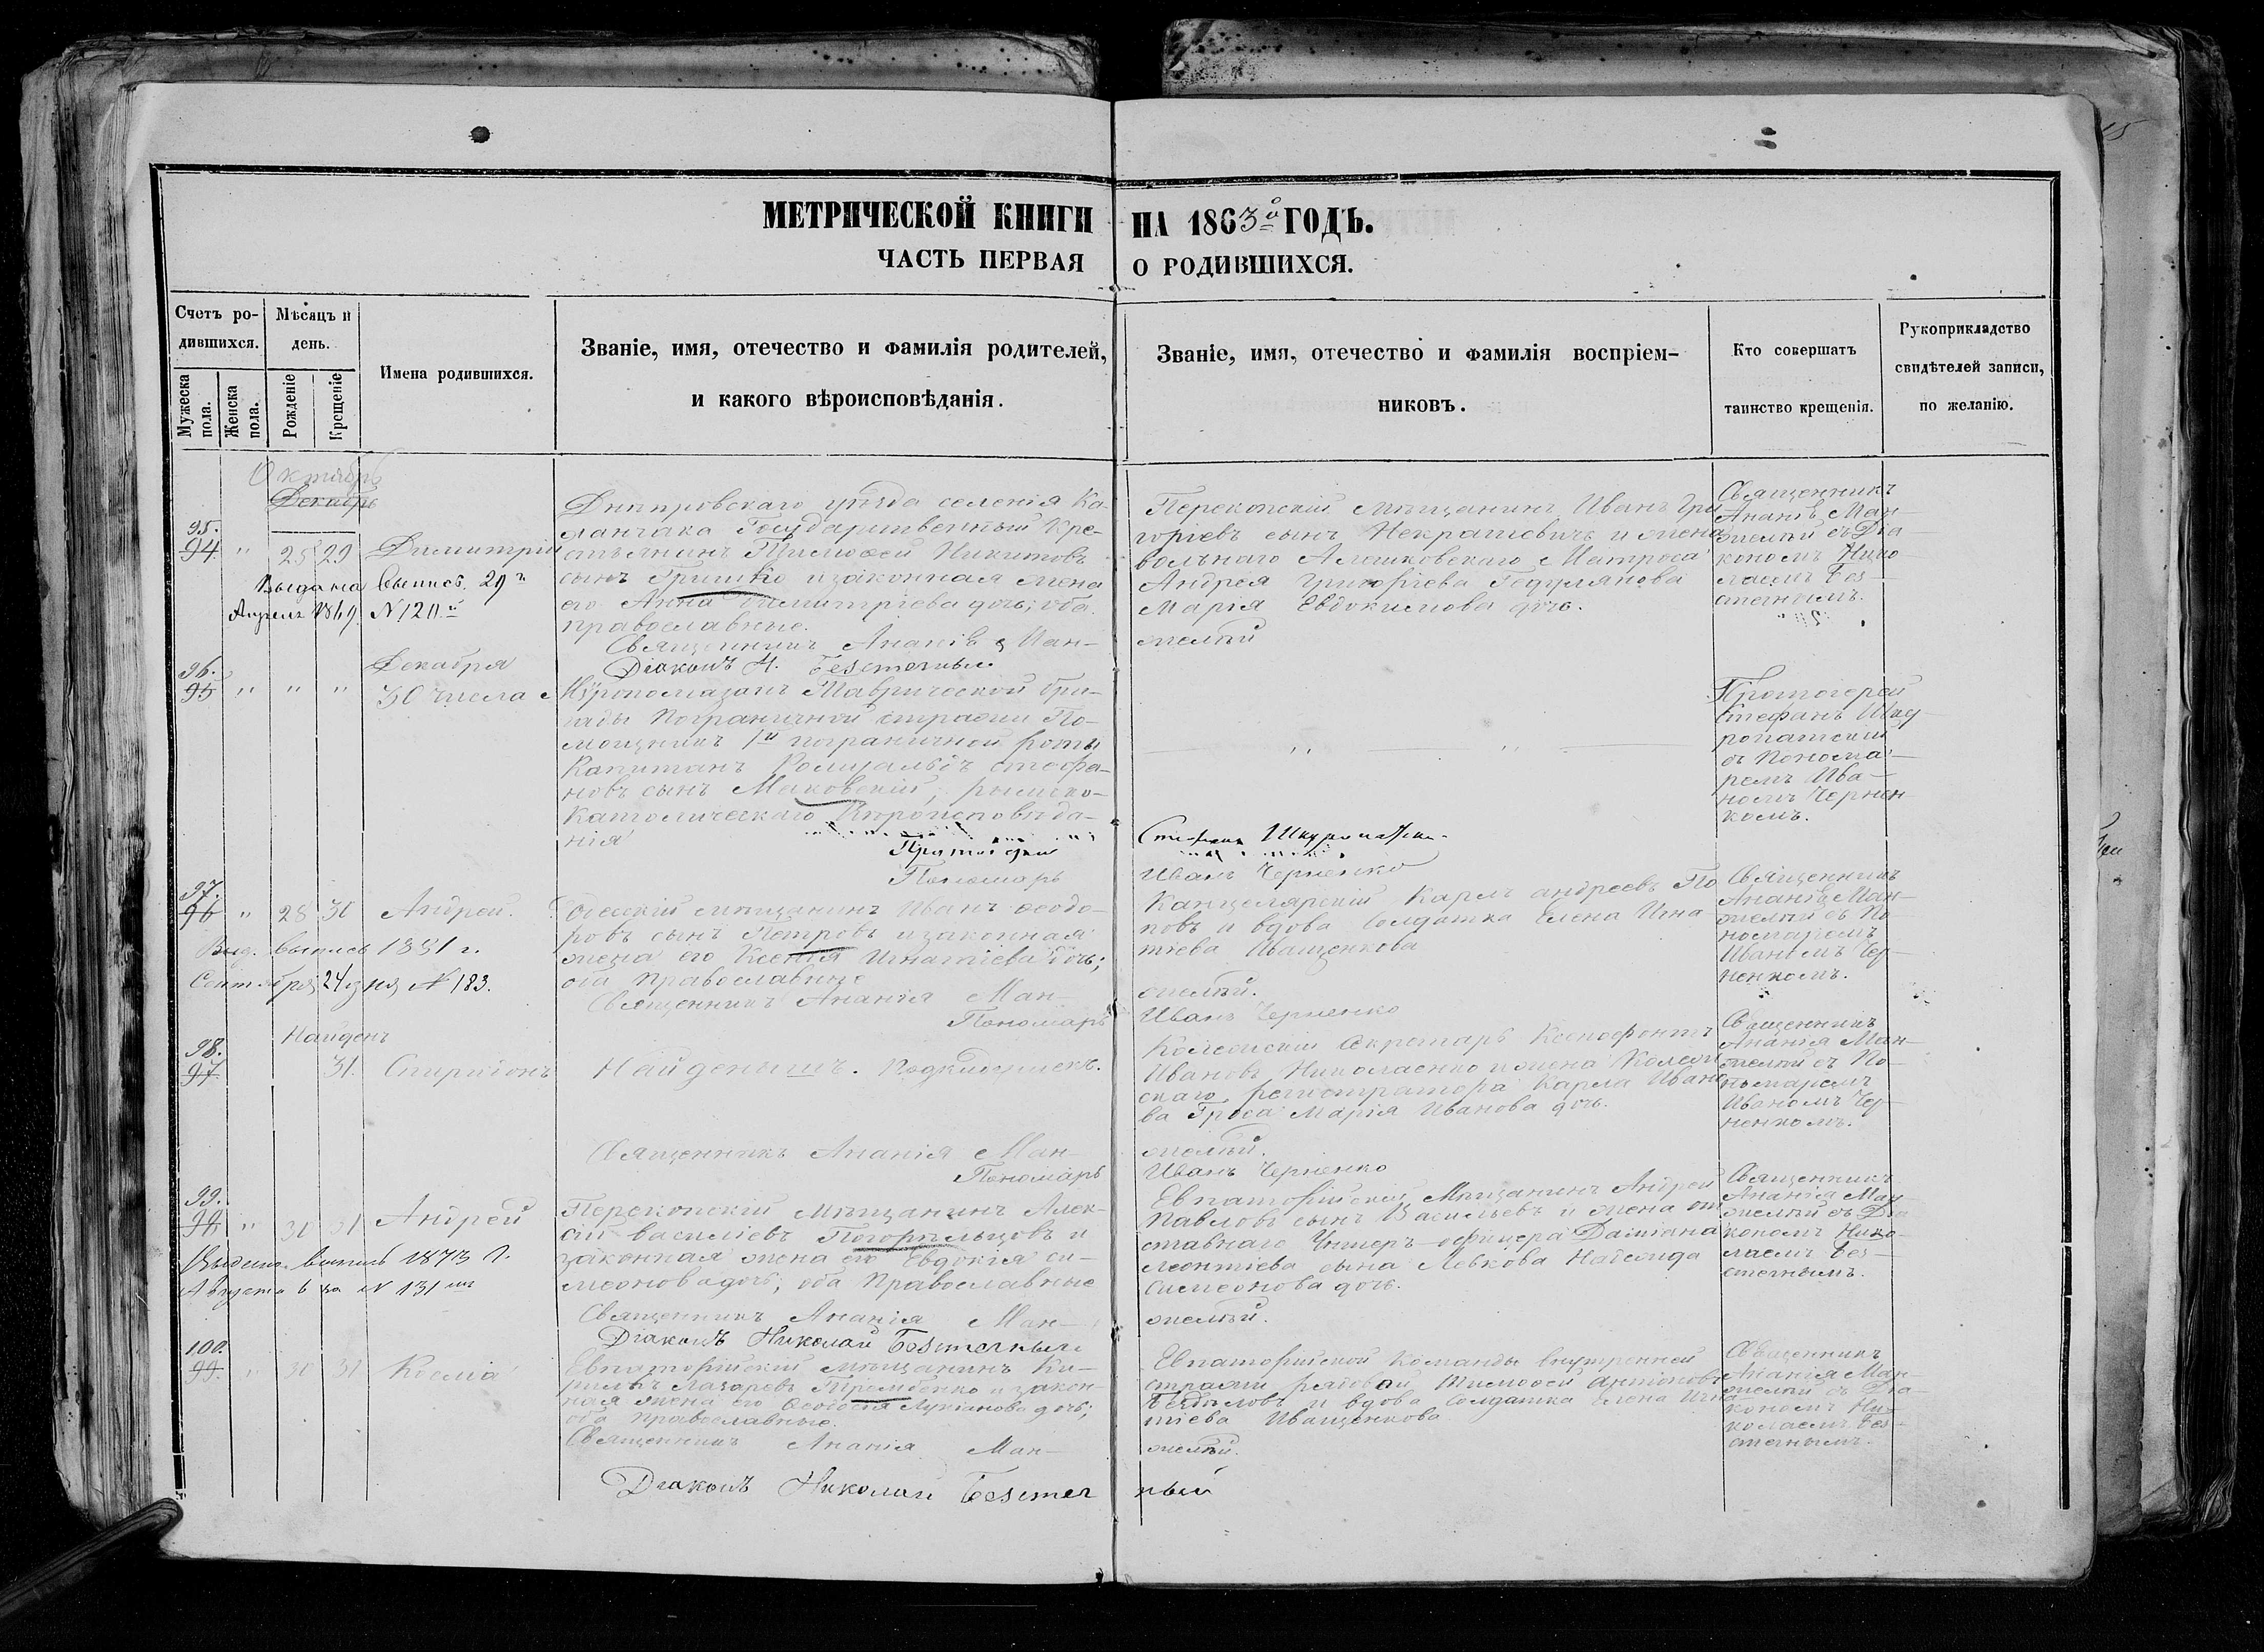 МЕТРИЧЕСКОЙ КНИГИ НА 1863 ГОДЪ.
ЧАСТЬ ПЕРВАЯ О РОДИВШИХСЯ.
Счетъ ро-
дившихся.
Мужеска пола.
Женска пола.
Мѣсяцъ и
день.
Рожденіе
Крещеніе
Имена родившихся.
Званіе, имя, отечество и фамилія родителей,
и какого вѣроисповѣданія.
Званіе, имя, отечество и фамилія воспріем-
никовъ.
Кто совершатъ
таинство крещенія.
Рукоприкладство
свидѣтелей записи,
по желанію.
Октябрь
Декабрь
95.
94 " 25 29 Димитрій
Выдана Выпись 29
Апрель 1869 N 120
Днѣпровскаго уѣзда селенія Ка-
ланчака Государственный Кре-
стьянинъ Тимоѳей Никитовъ
сынъ Гришко и законная жена
его Анна Димитріева дочь; оба
православные.
Священникъ Ананія Ман-
Діаконъ Н. Безсмертный
Перекопскій мѣщанинъ Иванъ Гри
горіевъ сынъ Некрашевичъ и жена
вольнаго Алешковскаго Матроса
Андрея Григоріева
Марія Евдокимова дочь.
жел‍ѣй
Священникъ
Ананія Ман-
желѣй съ Діа-
кономъ Нико
лаемъ Без-
96.
95 " " " Декабря
30 числа
Мѵропомазанъ Таврической Бри-
гады пограничной стражи По-
мощникъ 1й пограничной роты
Капитанъ Ромуальдъ Стефа-
новъ сынъ Маковскій, римско-
католическаго Вѣроисповѣда-
нія
Протоіерей
Пономарь
Стефанъ
Иванъ Черненко
Протоіерей
Стефанъ
съ Понома-
ремъ Ива-
номъ Чернен-
комъ.
97.
96 " 28 30 Андрей.
Выд. выпись 1881 г.
Сентября 24 дня N 183.
Одесскій мѣщанинъ Иванъ Ѳеодо-
ровъ сынъ Петровъ и законная
жена его Ксенія Игнатіева дочь;
оба Православные
Священникъ Ананія Ман-
Пономарь
Канцелярскій Карлъ Андреевъ По
повъ и вдова Солдатка Елена Игна
тіева Иващенкова
желѣй.
Иванъ Черненко
Священникъ
Ананія Ман-
желѣй съ По
номаремъ
Иваномъ Чер-
ненкомъ.
98.
97 Найденъ
31. Спиридонъ
Найденышъ. Подкидышекъ.
Священникъ Ананія Ман-
Пономарь
Колежскій Секретарь Ксенофонтъ
Ивановъ Николаенко и жена Колеж
скаго регистратора Карла Ивано
ва Гроса Марія Иванова дочь.
желѣй.
Иванъ Черненко
Священникъ
Ананія Ман-
желѣй съ По-
номаремъ
Иваномъ Чер-
ненкомъ.
99.
98 " 30 31 Андрей
Выдана выпись 1873 г.
Августа 6 за N 131
Перекопскій Мѣщанинъ Алек-
сій Василіевъ Погорѣльцовъ и
законная жена его Евдокія Си-
меонова дочь; оба Православные
Священникъ Ананія Ман-
Діаконъ Николай Безсмертный
Евпаторійскій Мѣщанинъ Андрей
Павловъ сынъ Васильевъ и жена от
ставнаго Унтеръ-офицера Даміана
Леонтіева сына Левкова Надежда
Симеонова дочь.
желѣй.
Священникъ
Ананія Ман-
желѣй съ Діа
кономъ Нико-
лаемъ Без-
100.
99. " 30 31 Косма
Евпаторійскій мѣщанинъ Ки-
риллъ Лазаревъ и закон-
ная жена его Ѳеодосія Лукіанова дочь;
оба Православные.
Священникъ Ананія Ман-
Діаконъ Николай Безсмертный
Евпаторійской Команды внутренней
стражи рядовой Тимоѳей Антоновъ
и вдова Солдатка Елена Игна
тіева Иващенкова
желѣй.
Священникъ
Ананія Ман-
желѣй съ Діа-
кономъ Ни-
колаемъ Без-